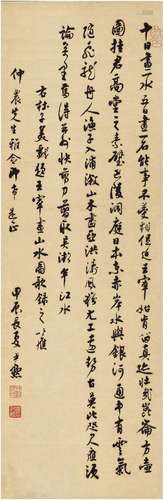 十日畫一水五日畫一石能事不受相促迫王宰始肯留真跡壯哉崑崙方壺
圖挂君高堂之素壁巴陵洞庭日本東赤岸水與銀河通中有雲氣
隨飛龍舟人漁子入浦漵山木盡亞洪濤風尤工遠勢古莫比咫尺應須
論萬里焉得并州快剪刀剪取吳淞半江水
右杜子美戲題王宰畫山水圖歌錄之以應
仲農先生雅令即希是正
甲辰長夏尹默